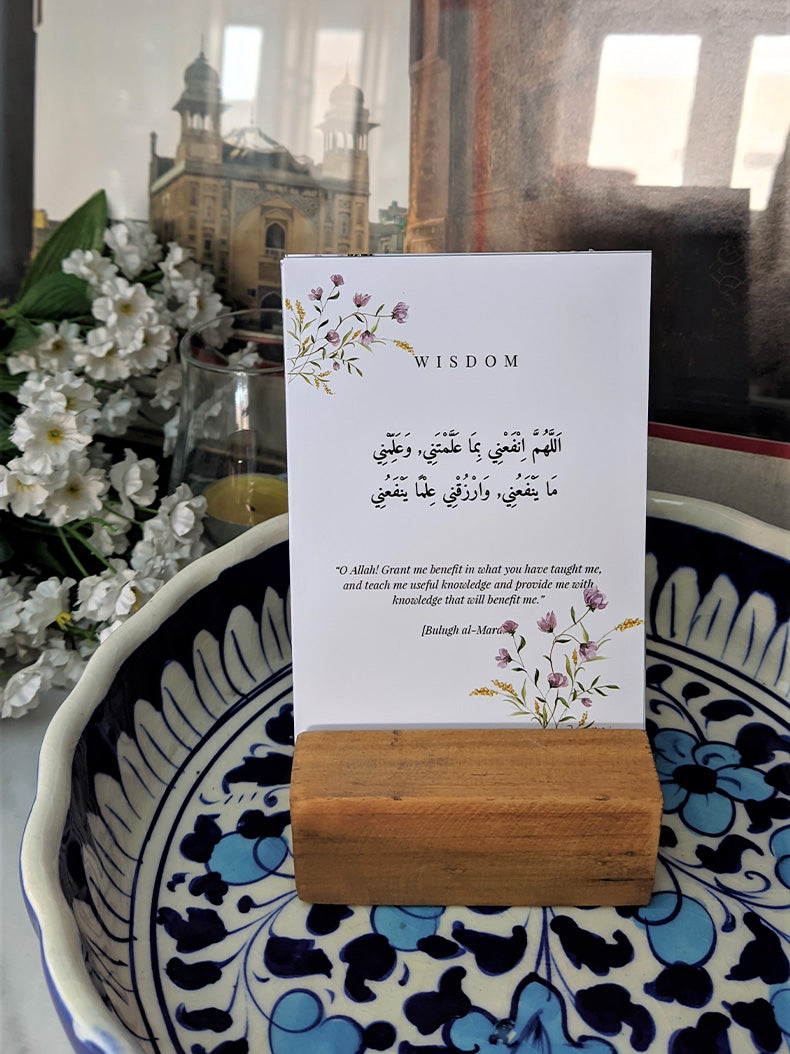 WISDOM
اَللَّهُمَّ اِنْفَعْنِي بِمَا عَلَّمْتَنِي, وَعَلِّمْنِي
مَا يَنْفَعُنِي, وَارْزُقْنِي عِلْمًا يَنْفَعُنِي
“O Allah! Grant me benefit in what you have taught me,
and teach me useful knowledge and provide me with
knowledge that will benefit me.”
[Bulugh